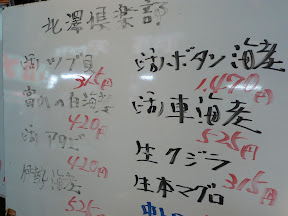 北澤倶楽部
(活)ツブ貝
315円
富山の白海老
420円
(活)アワビ
420円
伊勢海老
525円
(活)ボタン海老
1,470円
(活)車海老
525円
生クジラ
315円
生本マグロ